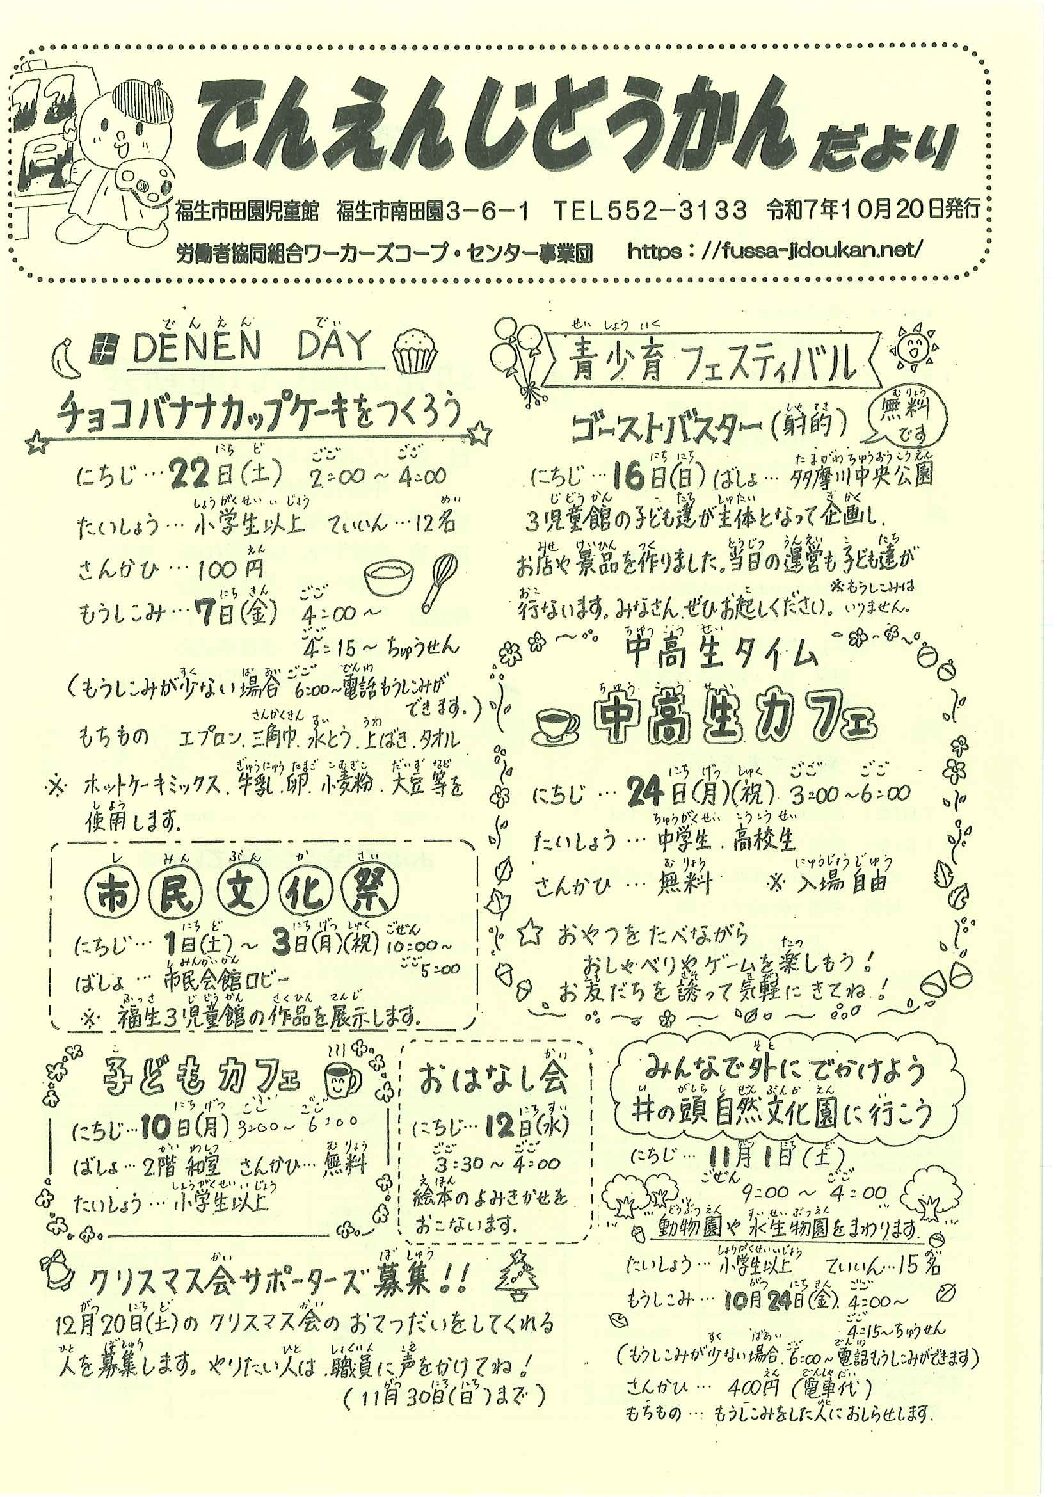 でんえんじどうかんだより
福生市田園児童館　福生市南田園3-6-1　TEL552-3133　令和7年10月20日発行
労働者協同組合ワーカーズコープ・センター事業団　https://fussa-jidoukan.net/
DENEN DAY
チョコバナナカップケーキをつくろう
にちじ…22日(土)　2:00～4:00
たいしょう…小学生以上　ていいん…12名
さんかひ…100円
もうしこみ…7日(金)　4:00～
4:15～ちゅうせん
(もうしこみが少ない場合 6:00～電話もうしこみが
できます。)
もちもの　エプロン.三角巾.水とう.上ばき.タオル
※ ホットケーキミックス.牛乳.卵.小麦粉.大豆等を
使用します.
市民文化祭
にちじ…1日(土)～3日(月)(祝)10:00～
5:00
ばしょ…市民会館ロビー
※ 福生3児童館の作品を展示します.
子どもカフェ
にちじ…10日(月)3:00～6:00
ばしょ…2階 和室　さんかひ…無料
たいしょう…小学生以上
おはなし会
にちじ…12日(水)
3:30～4:00
絵本のよみきかせを
おこないます.
クリスマス会サポーターズ募集!!
12月20日(土)のクリスマス会のおてつだいをしてくれる
人を募集します。やりたい人は、職員に声をかけてね!
(11月30日(日)まで)
青少育フェスティバル
ゴーストバスター(射的)
無料
です
にちじ…16日(日)ばしょ…多摩川中央公園
3児童館の子ども達が主体となって企画し.
お店や景品を作りました。当日の運営も子ども達が
行ないます。みなさん.ぜひお越しください。
※もうしこみは
いりません。
中高生タイム
中高生カフェ
にちじ…24日(月)(祝)3:00～6:00
たいしょう…中学生.高校生
さんかひ…無料　※入場自由
☆ おやつをたべながら
おしゃべりやゲームを楽しもう!
お友だちを誘って気軽にきてね!
みんなで外にでかけよう
井の頭自然文化園に行こう
にちじ…11月1日(土)
9:00～4:00
動物園や水生物園をまわります.
たいしょう…小学生以上　ていいん…15名
もうしこみ…10月24日(金)4:00～
4:15～ちゅうせん
(もうしこみが少ない場合.6:00～電話もうしこみができます)
さんかひ…400円(電車代)
もちもの…もうしこみをした人におしらせします.